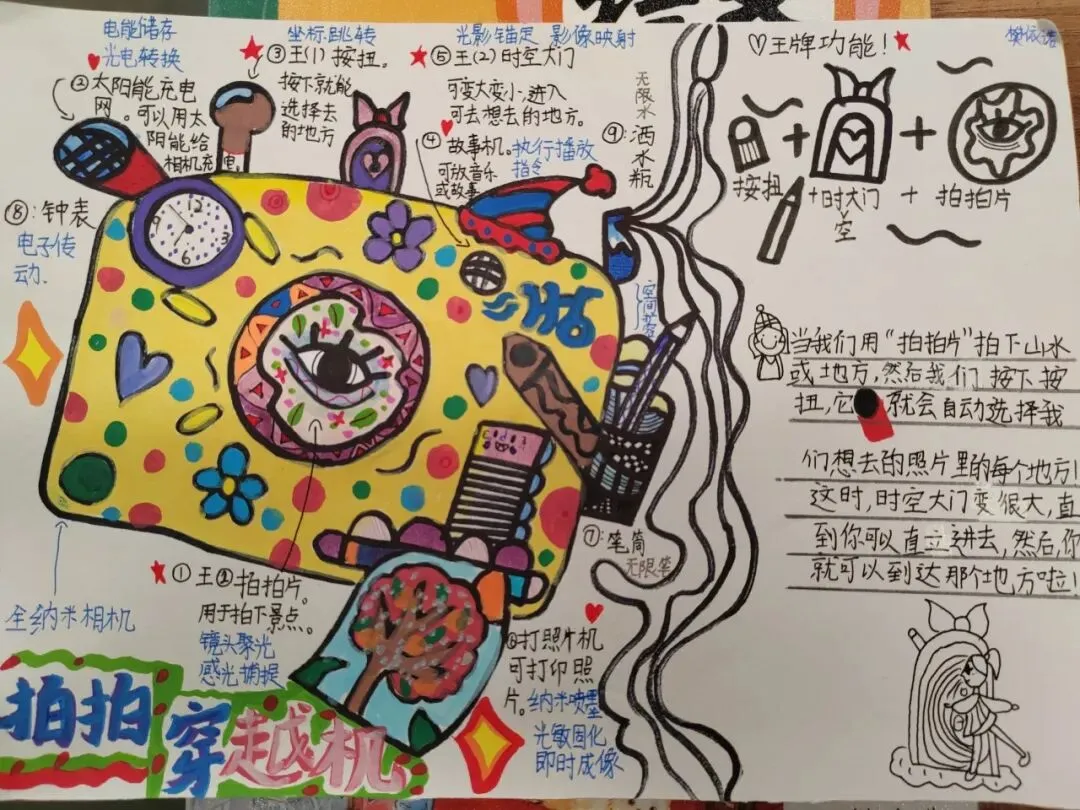 电能储存
光电转换
②太阳能充电
网。可以用太
阳能给
相机充电
坐标跳转
③王(1)按扭。
按下就能
选择去
的地方
光影锚定 影像映射
⑤王(2)时空大门
可变大变小,进入
可去想去的地方。
④故事机。执行播放
指令
可放音乐
或故事
无限水
⑨:洒水瓶
⑧:钟表
电子传
动.
12
3
6
9
空间扩容
⑦:笔筒
无限笔
①王③拍拍片。
用于拍下景点。
镜头聚光
感光捕捉
全纳米相机
⑥打照片机
可打印照
片。纳米喷墨
光敏固化
即时成像
拍拍穿越机
♡王牌功能!
樊依诺
按扭
十时大门
空
+ 拍拍片
当我们用“拍拍片”拍下山水
或地方,然后我们按下按
扭,它就会自动选择我
们想去的照片里的每个地方!
这时,时空大门变很大,直
到你可以直立进去,然后,你
就可以到达那个地方啦!